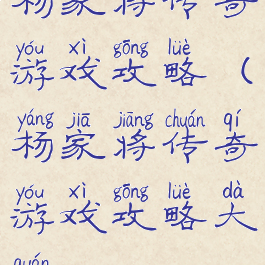 杨家将传奇
yóu xì gōng lüè
游戏攻略（
yáng jiā jiāng chuán qí
杨家将传奇
yóu xì gōng lüè dà
游戏攻略大
quán